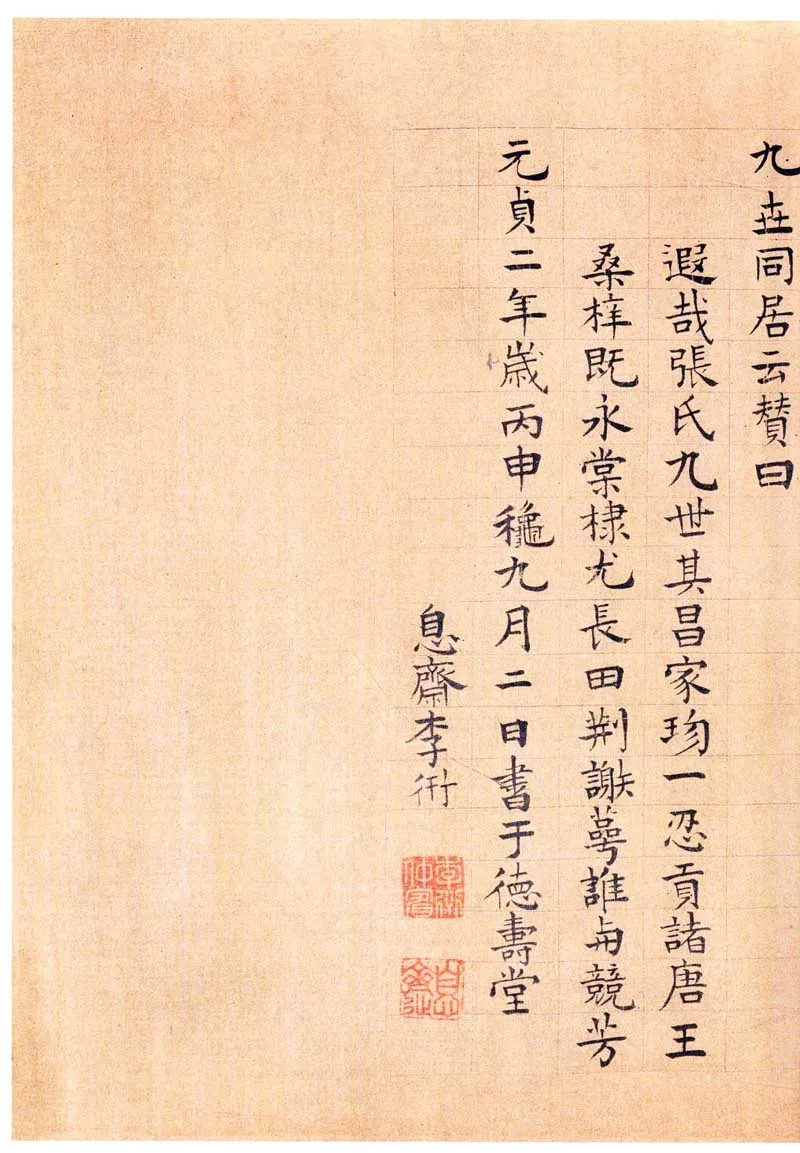 九世同居云賛曰
遐哉張氏九世其昌家珎一忍貢諸唐王
桑梓既永棠棣尤長田荆謝萼誰與競芳
元貞二年歲丙申龝九月二日書于德壽堂
息齋李衎
李衎仲賓
息齋